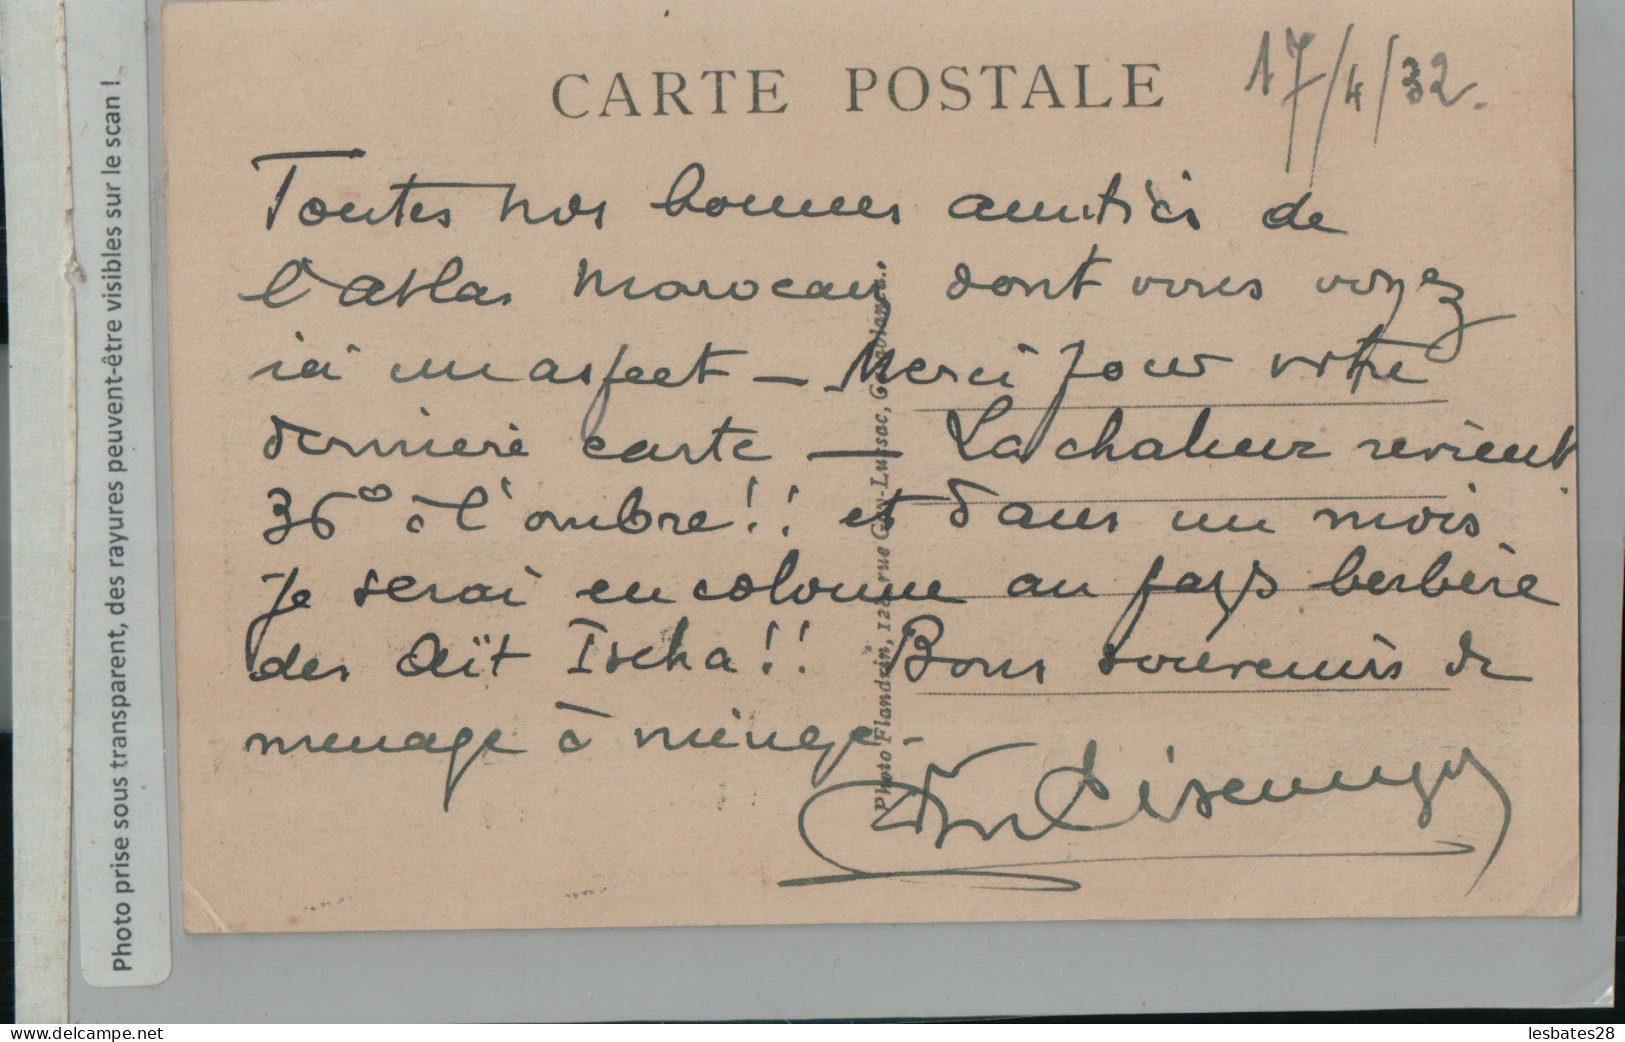 CARTE POSTALE
17/4/32.
Toutes nos bonnes amitiés de
l'atlas marocain dont vous voyez
ici un aspect – Merci pour votre
dernière carte – La chaleur revient
36° à l'ombre!! et dans un mois
je serai en colonne au pays berbère
des Aït Ischa!! Bons souvenirs de
menage à ménage.
Photo Flandrin, 128, rue Gay-Lussac, Casablanca.
Photo prise sous transparent, des rayures peuvent-être visibles sur le scan !
www.delcampe.net
lesbates28